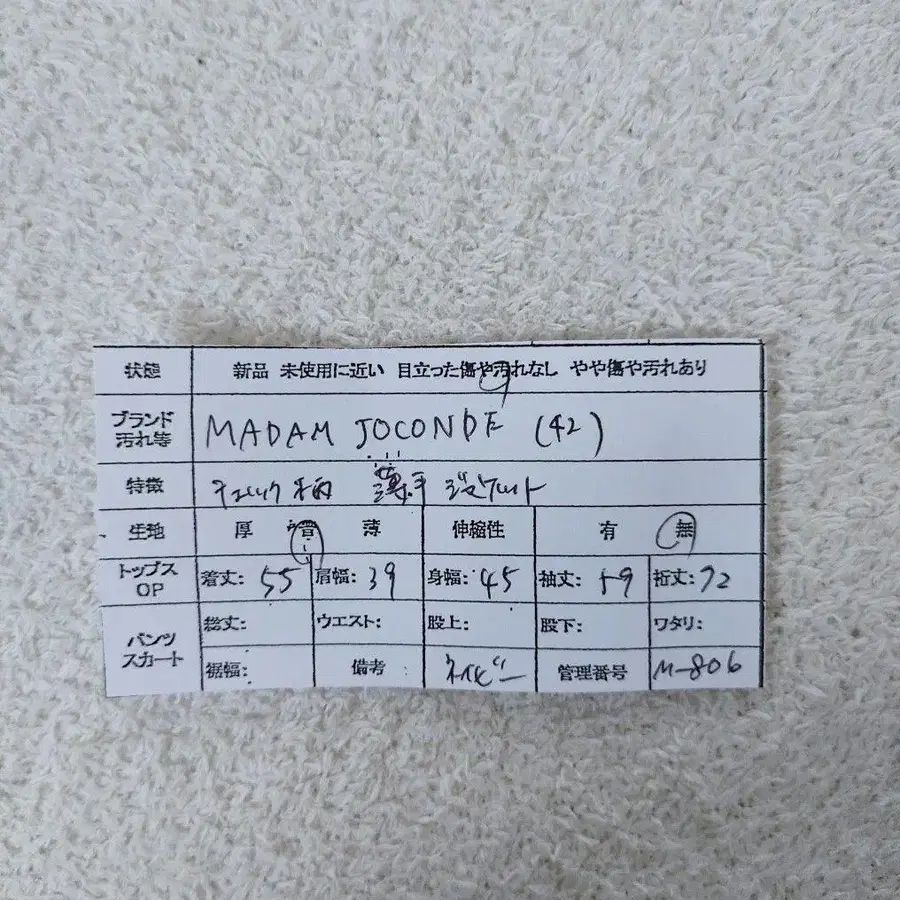 状態 新品 未使用に近い 目立った傷や汚れなし やや傷や汚れあり
ブランド
汚れ等 MADAM JOCONDE (42)
特徴 チェック柄 薄手 ジャケット
生地 厚 普 薄 伸縮性 有 無
トップス
OP 着丈: 55 肩幅: 39 身幅: 45 袖丈: 59 裄丈: 72
パンツ
スカート 総丈: ウエスト: 股上: 股下: ワタリ:
裾幅: 備考 ネイビー 管理番号 M-806